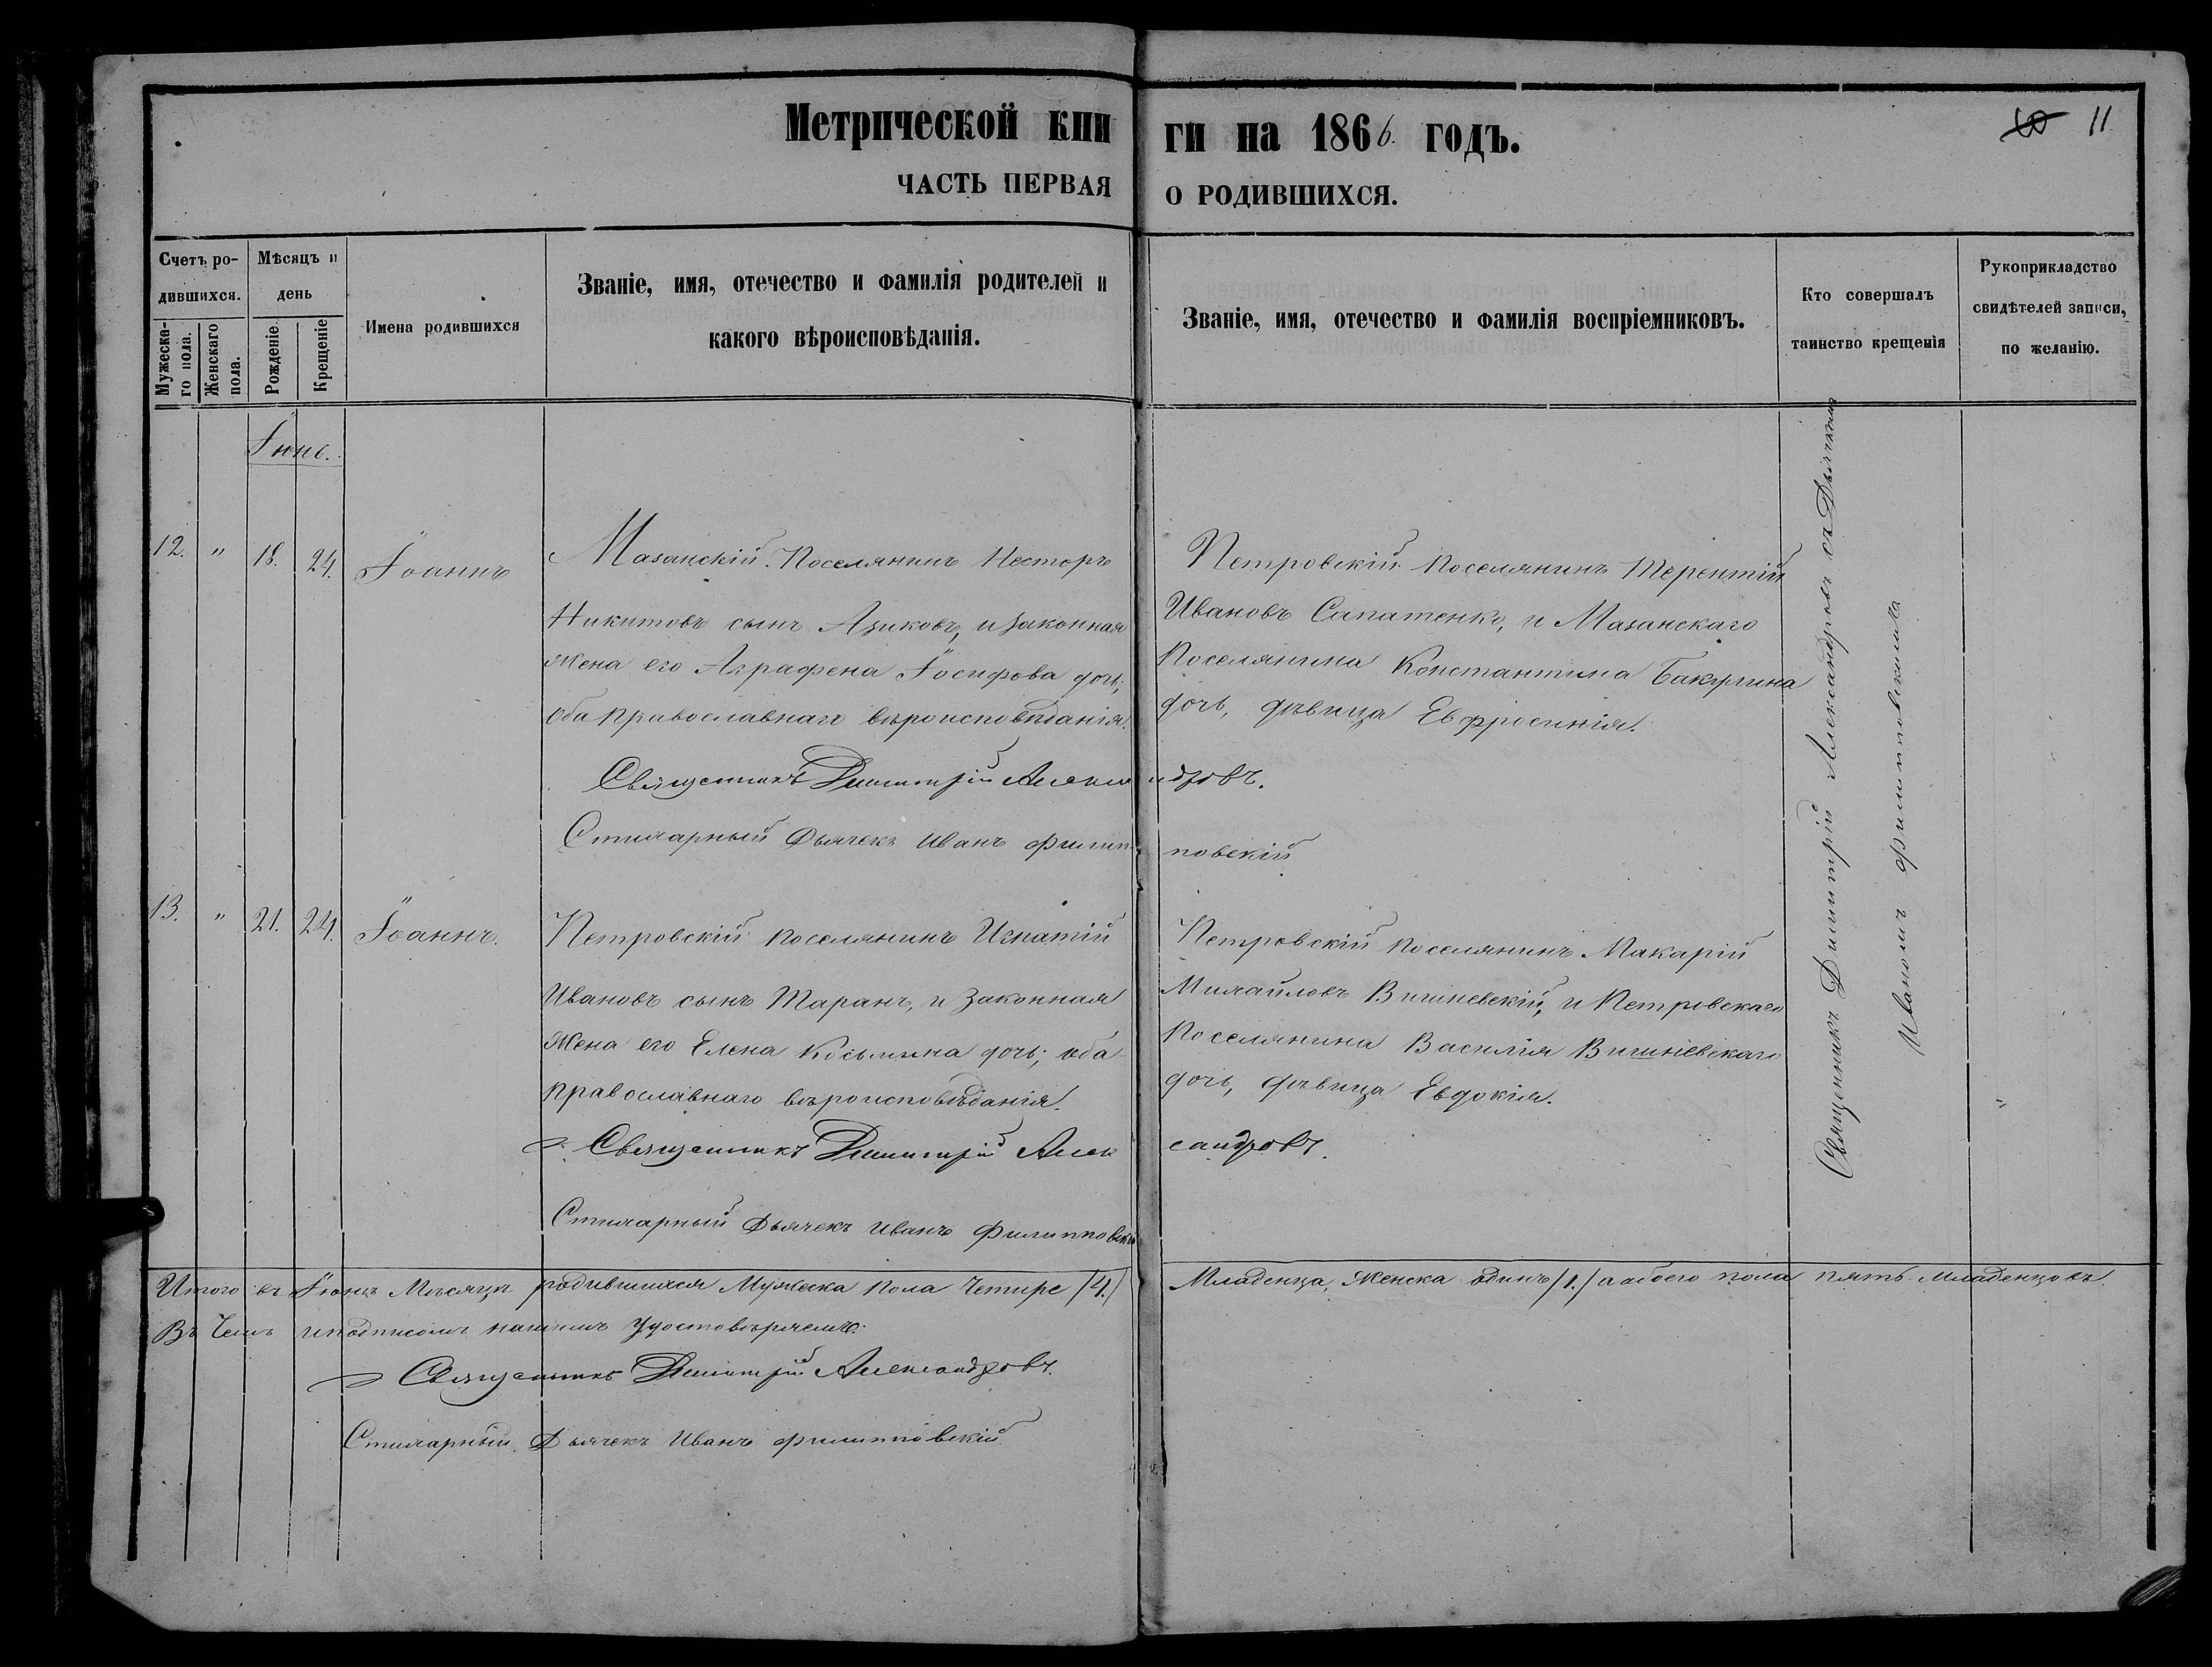 Метрической кни ги на 1866. годъ.
10 11
ЧАСТЬ ПЕРВАЯ О РОДИВШИХСЯ.
Счетъ ро-
дившихся.
Мужеска-
го пола.
Женскаго
пола.
Мѣсяцъ и
день
Рожденіе.
Крещеніе
Имена родившихся
Званіе, имя, отечество и фамилія родителей и
какого вѣроисповѣданія.
Званіе, имя, отечество и фамилія воспріемниковъ.
Кто совершалъ
таинство крещенія
Рукоприкладство
свидѣтелей записи,
по желанію.
Іюнь.
12. " 18. 24. Іоаннъ
Мазанскій Поселянинъ Несторъ
Никитовъ сынъ Азиковъ, и законная
жена его Аграфена Іосифова дочь;
оба православнаго вѣроисповѣданія.
Петровскій поселянинъ Терентій
Ивановъ Сапатенко, и Мазанскаго
поселянина Константина Бакулина
дочь, дѣвица Евфросинія.
Священникъ Димитрій Александровъ.
Стихарный Дьячекъ Иванъ Филипповскій
13. " 21. 24. Іоаннъ.
Петровскій поселянинъ Игнатій
Ивановъ сынъ Таранъ, и законная
жена его Елена Косьмина дочь; оба
православнаго вѣроисповѣданія.
Петровскій поселянинъ Макарій
Михайловъ Вишневскій, и Петровскаго
поселянина Василія Вишневскаго
дочь, дѣвица Евдокія.
Священникъ Димитрій Александровъ.
Стихарный Дьячекъ Иванъ Филипповскій
Священникъ Димитрій Александровъ съ Дьячкомъ
Иваномъ Филипповскимъ
Итого въ Іюнѣ Мѣсяцѣ родившихся Мужеска пола Четыре /4./ Младенца, Женска одинъ /1./ а обоего пола пять младенцовъ.
Въ чемъ и подписомъ нашимъ удостовѣряемъ:
Священникъ Димитрій Александровъ.
Стихарный Дьячекъ Иванъ Филипповскій